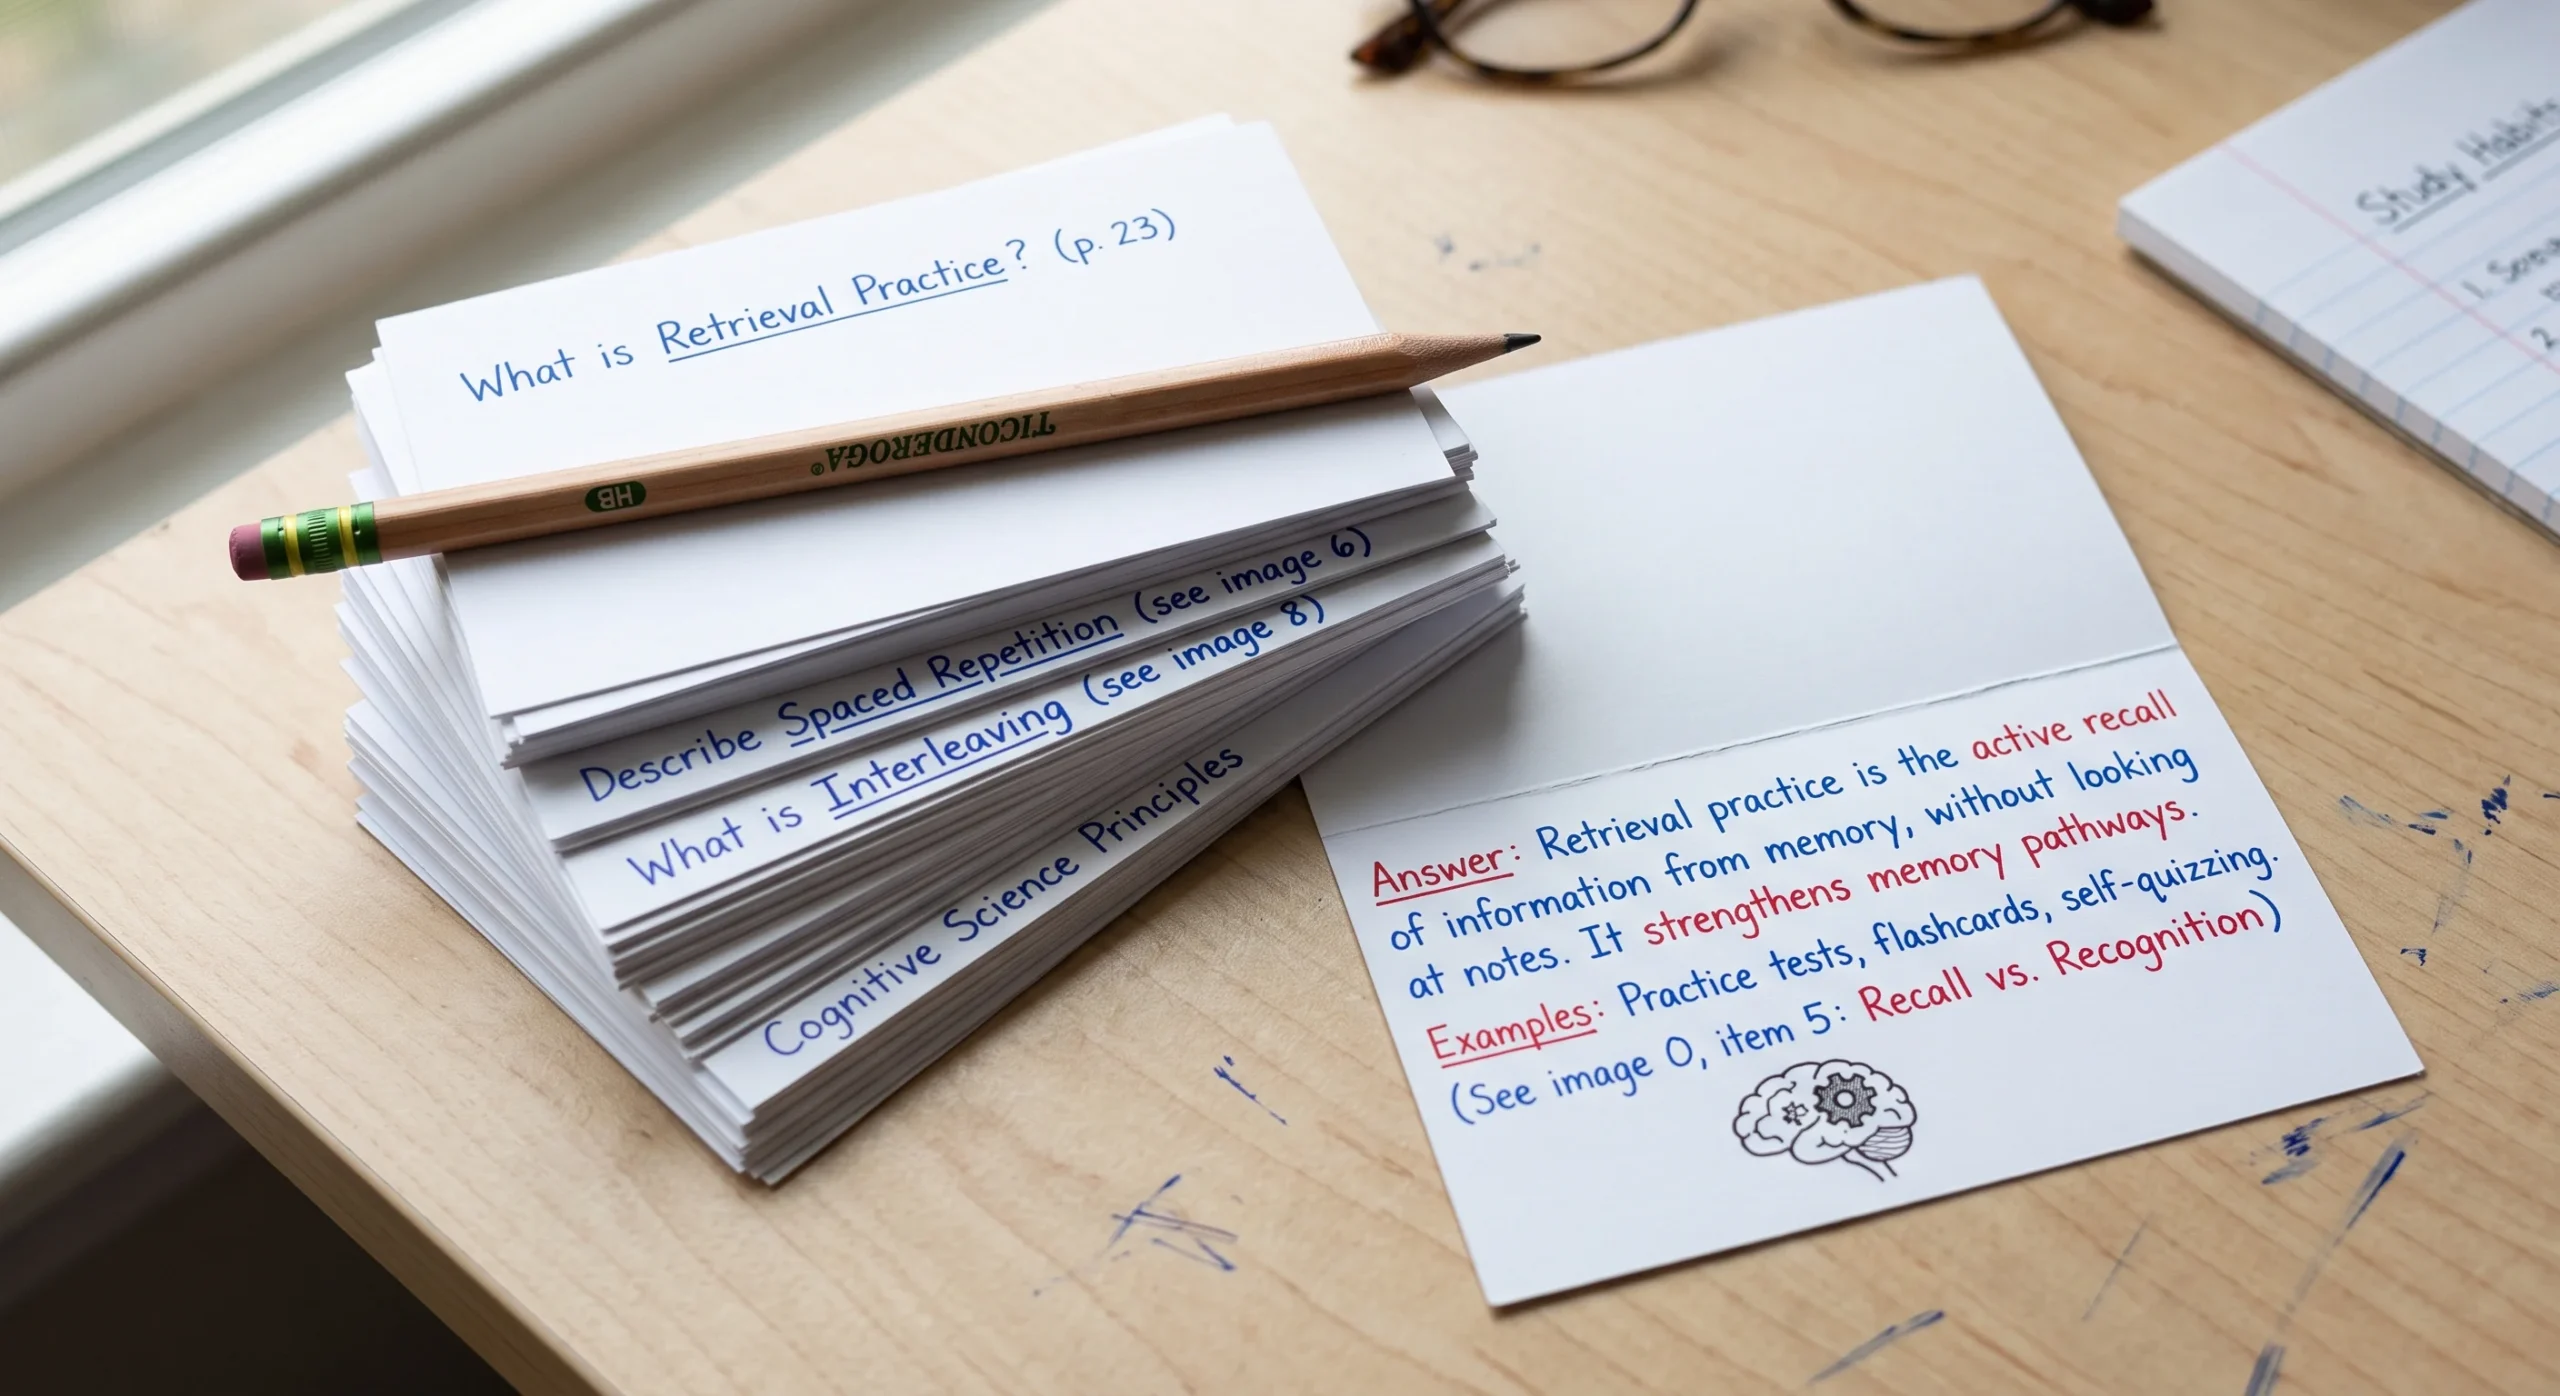 What is Retrieval Practice? (p. 23)
TICONDEROGA®
HB
Describe Spaced Repetition (see image 6)
What is Interleaving (see image 8)
Cognitive Science Principles
Answer: Retrieval practice is the active recall
of information from memory, without looking
at notes. It strengthens memory pathways.
Examples: Practice tests, flashcards, self-quizzing.
(See image 0, item 5: Recall vs. Recognition)
Study Habits
1.
2